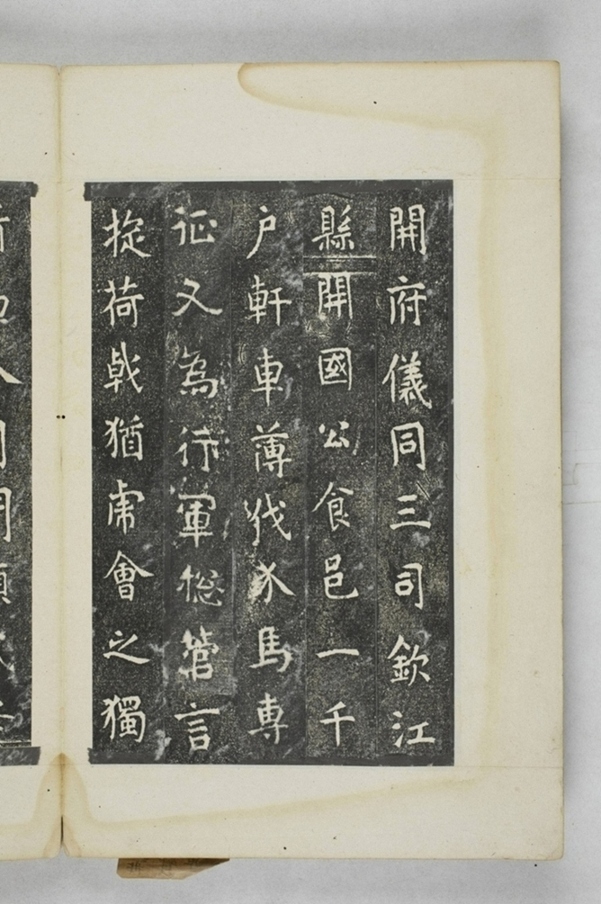 開府儀同三司欽江
縣開國公食邑一千
户軒車薄伐介馬專
征又為行軍總管言
旋荷戟猶虎會之獨